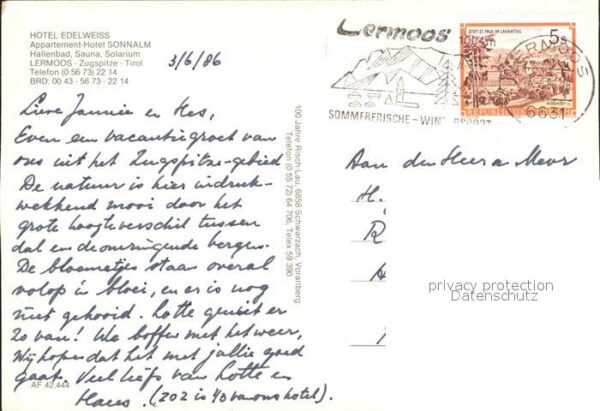 HOTEL EDELWEISS
Appartement-Hotel SONNALM
Hallenbad, Sauna, Solarium
LERMOOS - Zugspitze - Tirol
Telefon (0 56 73) 22 14
BRD: 00 43 - 56 73 - 22 14
3/6/86
Lieve Jannie en Hes,
Even een vacantiegroet van
ons uit het Zugspitze-gebied
De natuur is hier indruk-
wekkend mooi door het
grote hoogteverschil tussen
dal en de omringende bergen.
De bloemetjes staan overal
volop in bloei, en er is nog
niet gehooid. Lotte geniet er
zo van! We boffen met het weer,
Wij hopen dat het met jullie goed
gaat. Veel liefs van Lotte en
(202 is van ons hotel).
AF 42.444
100 Jahre Risch-Lau, 6858 Schwarzach, Vorarlberg
Telefon (0 55 72) 64 706, Telex 59 390
Lermoos
SOMMERFRISCHE - WIN
STIFT ST. PAUL IM LAVANTTAL
5s
REPUBLIK
LERMOOS
6631
Aan den Heer en Mevr
H.
R
A
privacy protection
Datenschutz